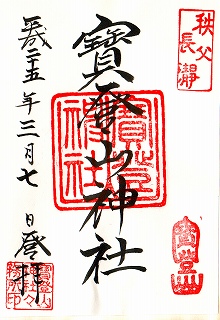 秩父
長瀞
寶登山神社
寶登山
平成二十五年三月七日登拝
寶登山
神社々
務所印